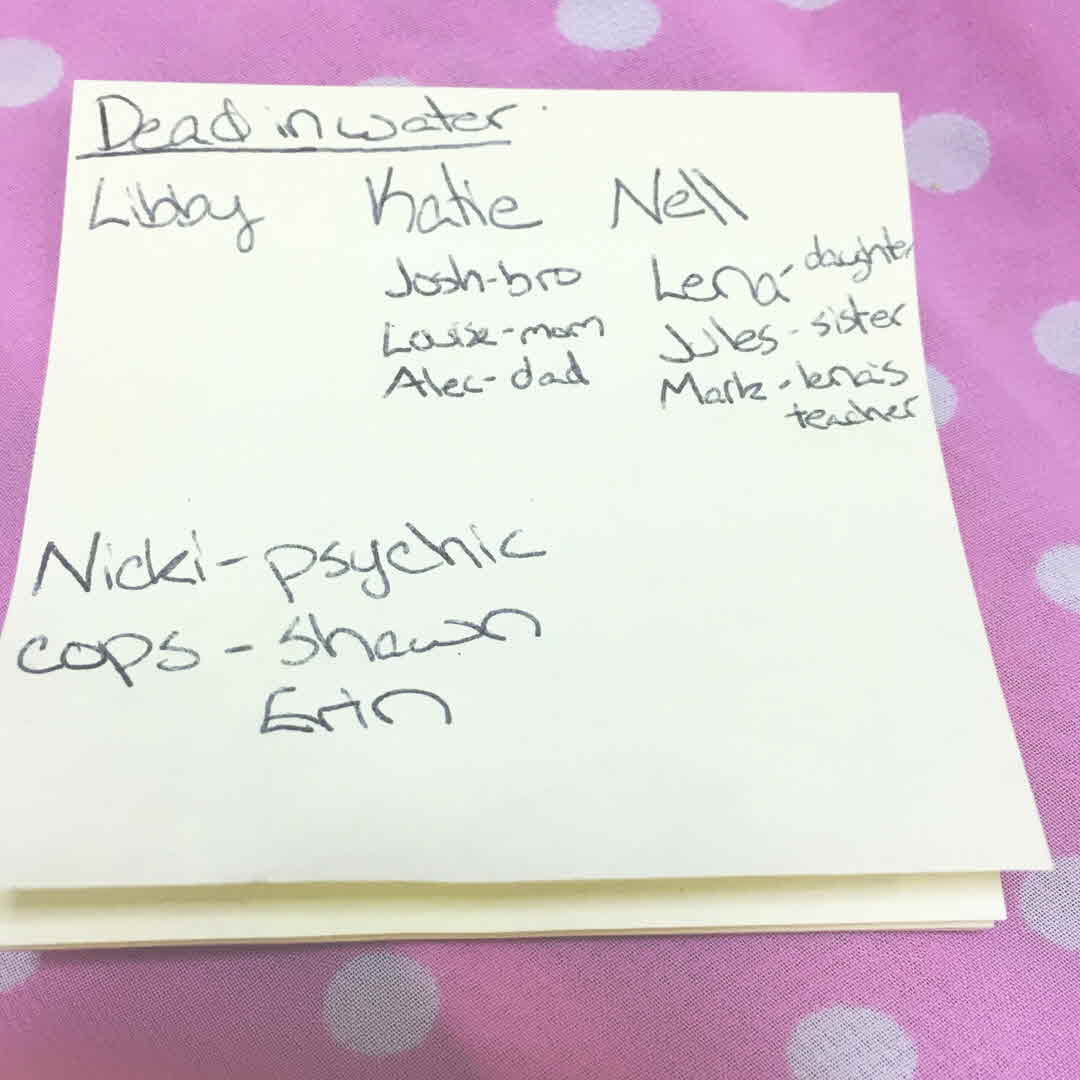 Dead in water
Libby Katie Nell
Josh-bro Lena-daughter
Louise-mom Jules-sister
Alec-dad Mark-lena's
teacher
Nicki-psychic
cops-Shawn
Erin